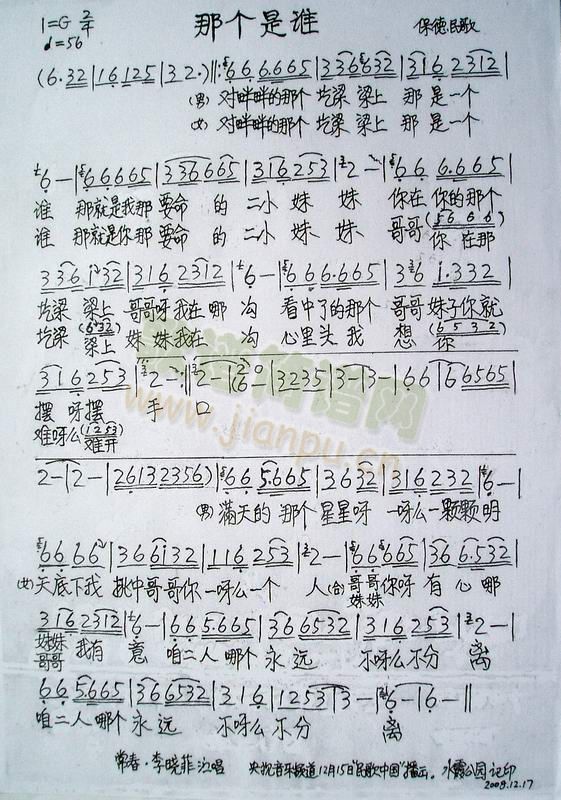 1=G 2/4
♩=56
那个是谁
保德民歌
(6.32|16125|32.)||:66 6.665|336632|316 2312|
(男) 对畔畔的那个 圪梁 梁上 那 是一个
(女) 对畔畔的那个 圪梁 梁上 那 是一个
6-|66665|336665|316253|2-|66 6.665|
谁 那就是我那 要命 的 二小 妹 妹 你在 你的那个
谁 那就是你那 要命 的 二小 妹 妹 哥哥(56 6 6) 你 在那
336132|3162312|6-|66 6.665|336 1.332|
圪梁 梁上 哥哥呀我在 哪 沟 看中了的那个 哥哥 妹子你就
圪梁(632) 梁上 妹 妹我在 沟 心里头我 想(6532) 你
316253|2-:||2-|26 0|3235|3-|3-|66|66565|
摆 呀摆 手 口
难呀么(1253) 难开
2-|2-|26132356)|66 5.665|3632|316232|6-|
(男) 满天的 那个 星星呀 一呀么一颗颗明
66 66|366132|116253|2-|66665|366.532|
(女) 天底下我 挑中哥哥你 一呀么一个 人(合) 哥哥你呀 有 心 哪
妹妹
3162312|6-|66 5.665|366532|316253|2-|
妹妹 我有 意 咱二人 哪个 永 远 不呀么不分 离
哥哥
66 5.665|366532|316|1253|3-|6-|6-||
咱二人 哪个 永 远 不呀么 不分 离
常春·李晓菲 演唱 央视音乐频道12月15日"民歌中国"播出。水露公园 记印
2008.12.17
简谱网
www.jianpu.cn